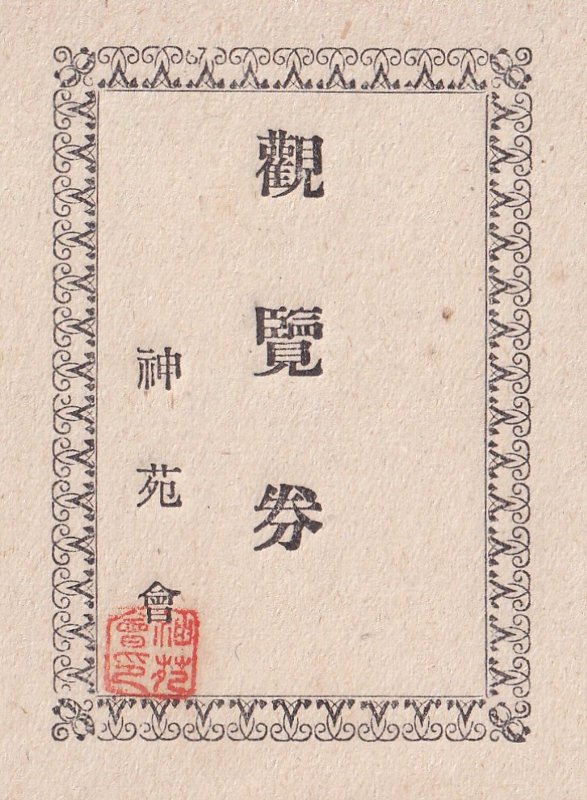 觀覽券
神苑會
神苑會印